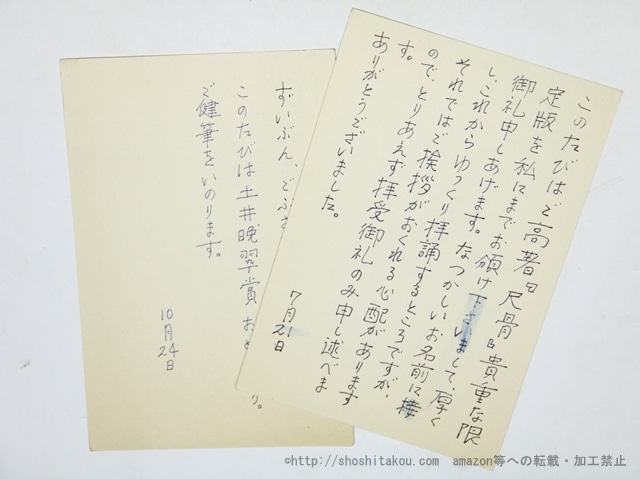 このたびはご高著『尺骨』貴重な限
定版を私にまでお頒け下さいまして、厚く
御礼申しあげます。なつかしいお名前に接
し、これからゆっくり拝誦するところですが、
それではご挨拶がおくれる心配があります
ので、とりあえず拝受御礼のみ申し述べま
す。
ありがとうございました。
7月21日
ずいぶん、ごぶさ
このたびは土井晩翠賞 お
ご健筆をいのります。
10月24日
©http://shoshitakou.com amazon等への転載・加工禁止